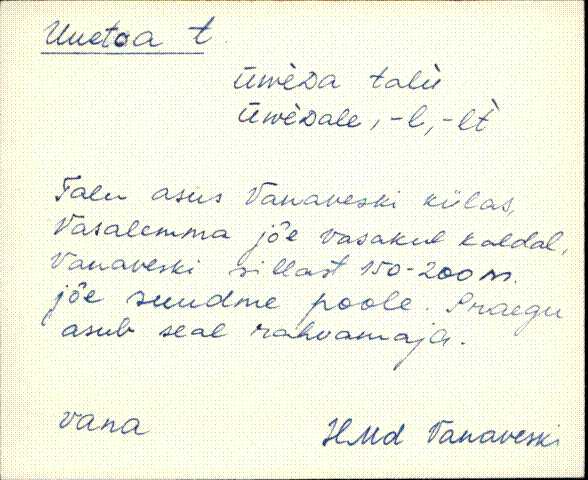 Uuetoa t.
ūwèDa talù
ūwèDale, -l, -lt̀
Talu asus Vanaveski külas,
Vasalemma jõe vasakul kaldal,
Vanaveski sillast 150-200 m.
jõe suudme poole. Praegu
asub seal rahvamaja.
vana
HMd Vanaveski